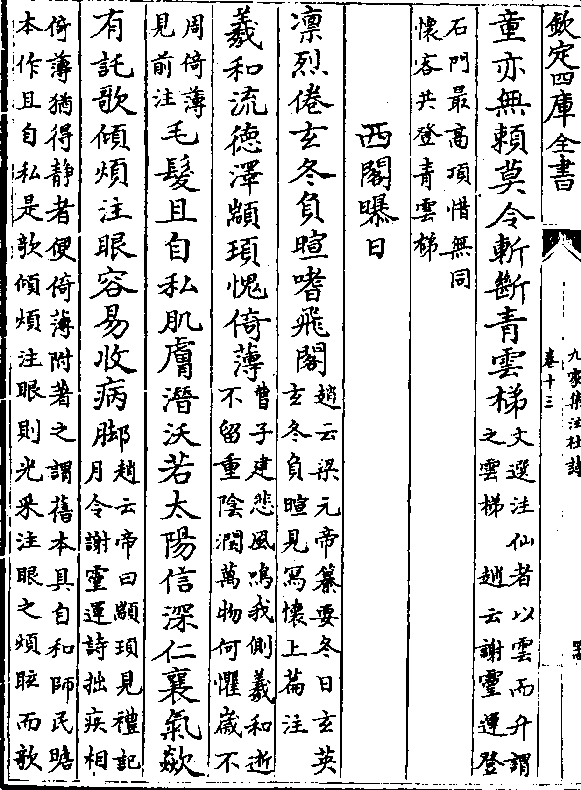 欽定四庫全書
九家集注杜詩
卷十三
童亦無賴莫令斬斷青雲梯
文選注仙者以雲而升謂
之雲梯 趙云謝靈運登
石門最高頂惜無同
懷客共登青雲梯
西閣曝日
凛烈倦玄冬負暄嗜飛閣
趙云梁元帝纂要冬日玄英
玄冬負暄見寫懷上篇注
羲和流德澤顓頊愧倚薄
曹子建悲風鳴我側羲和逝
不留重陰潤萬物何懼歲不
周倚薄
見前注
毛髮且自私肌膚潛沃若太陽信深仁衰氣歘
有託欹傾煩注眼容易收病脚
趙云帝曰顓頊見禮記
月令謝靈運詩拙疾相
倚薄猶得静者便倚薄附著之謂舊本具自和師民瞻
本作且自私是欹傾煩注眼則光采注眼之煩眩而欹